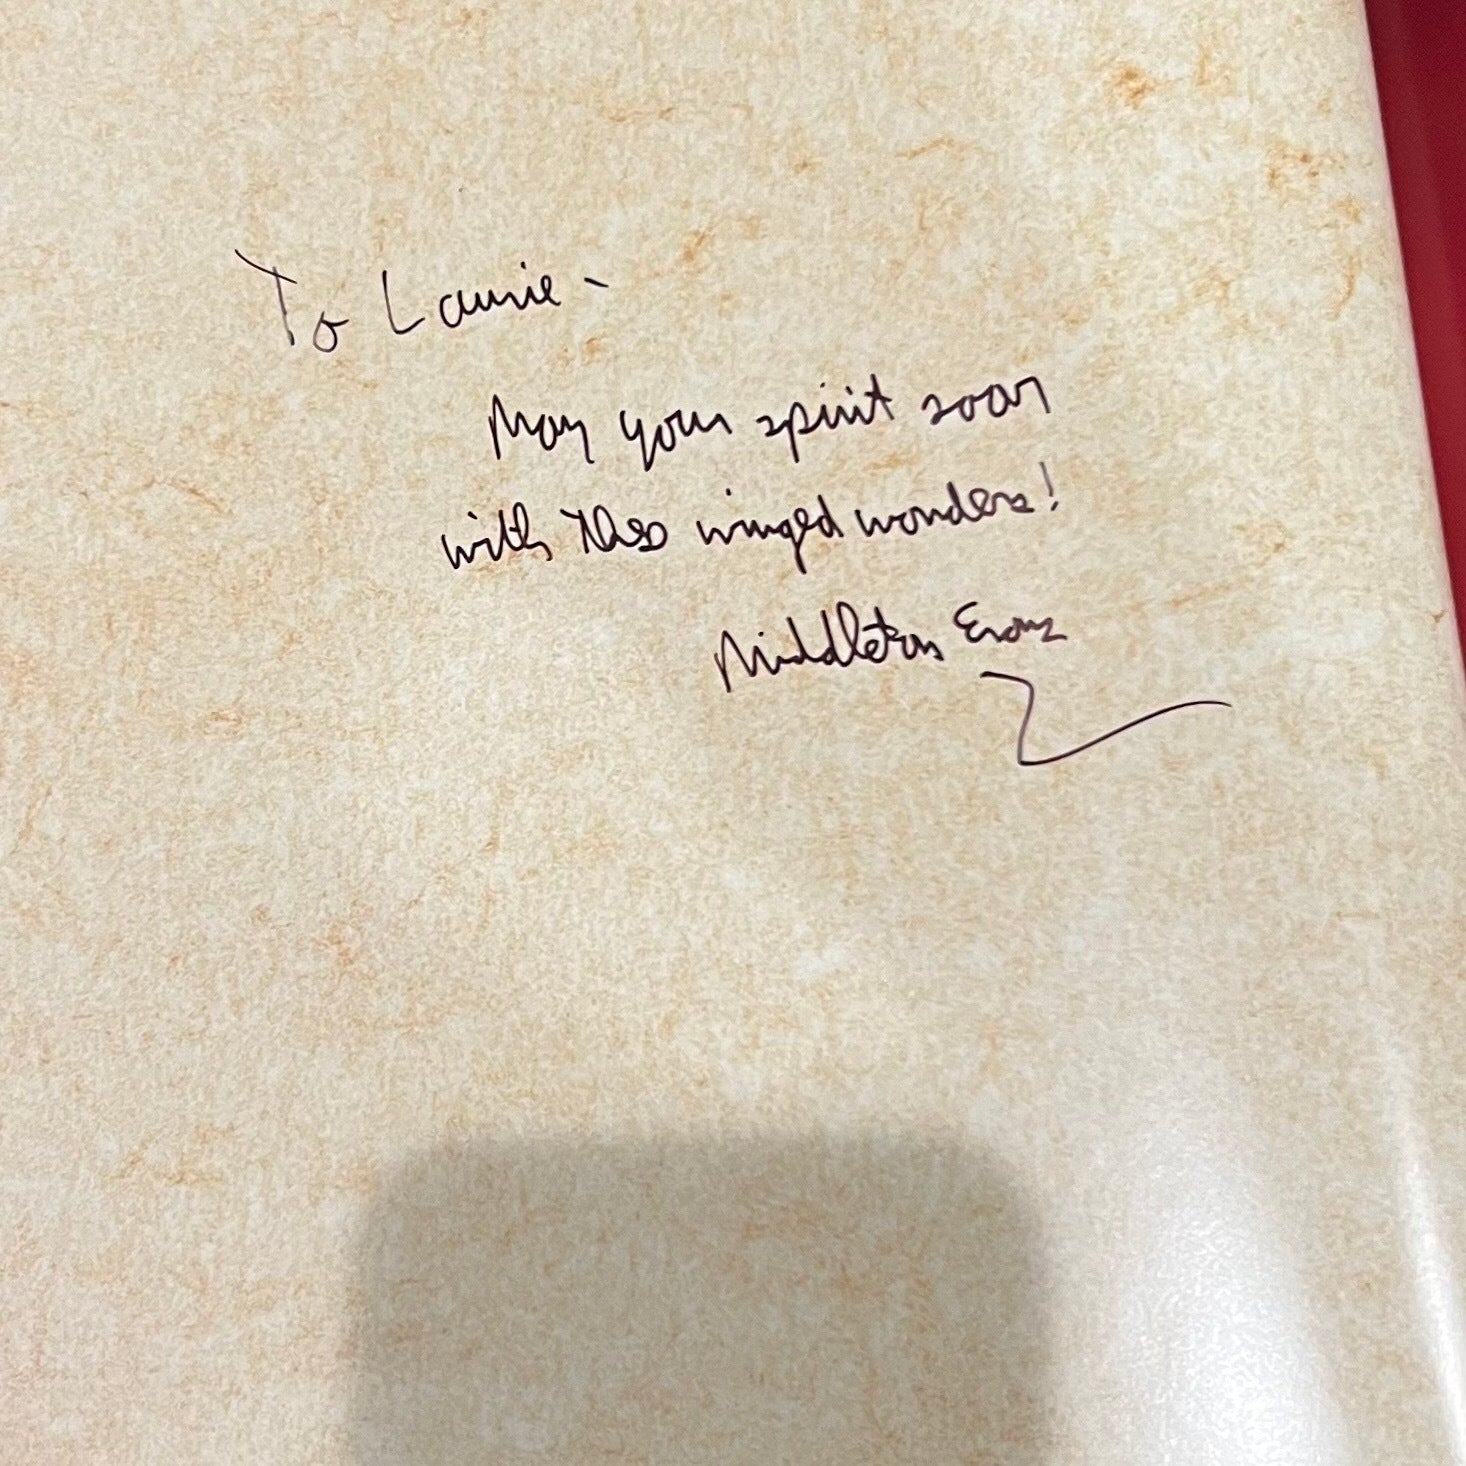 To Laurie -
May your spirit soar
with these winged wonders!
Middleton Evans